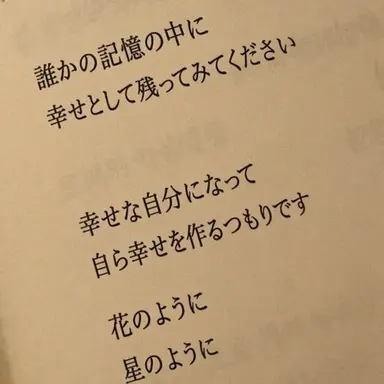 誰かの記憶の中に
幸せとして残ってみてください
幸せな自分になって
自ら幸せを作るつもりです
花のように
星のように